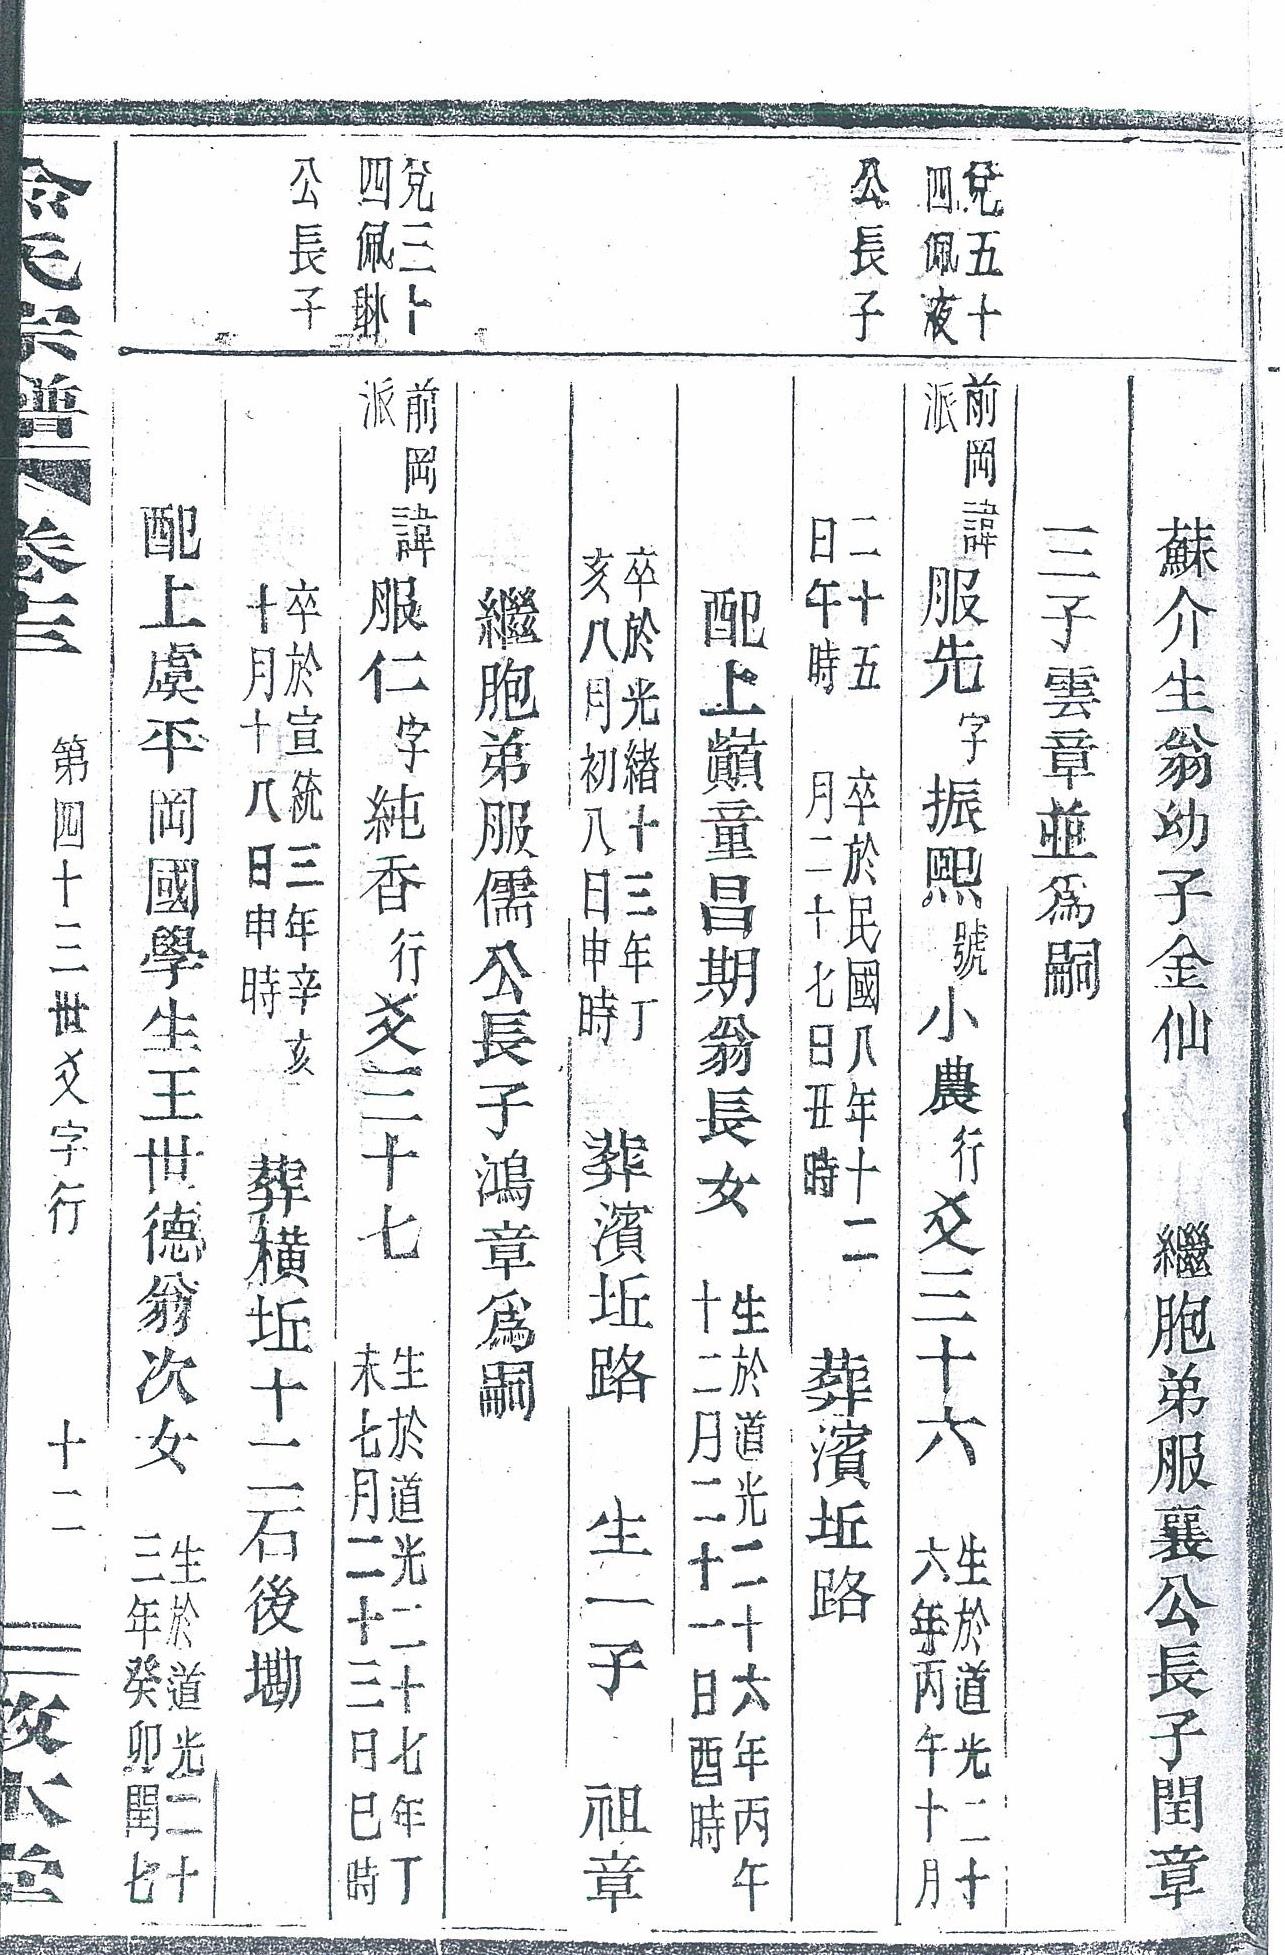 蘇介生翁幼子金仙　繼胞弟服襄公長子閏章
三子雲章並為嗣
兌五十
四佩液
公長子
前岡諱
派
服先字振熙號小農行爻三十六　生於道光二十
六年丙午十月
二十五
日午時
卒於民國八年十二
月二十七日丑時
葬濱坵路
配上巔童昌期翁長女　生於道光二十六年丙午
十二月二十一日酉時
卒於光緒十三年丁
亥八月初八日申時
葬濱坵路　生一子　祖章
繼胞弟服儒公長子鴻章為嗣
兌三十
四佩
公長子
前岡諱
派
服仁字純香行爻三十七　生於道光二十七年丁
未七月二十三日巳時
卒於宣統三年辛亥
十月十八日申時
葬橫坵十一石後墈
配上虞平岡國學生王世德翁次女　生於道光二十
三年癸卯閏七
氏宗譜　卷三　第四十三世爻字行　十二